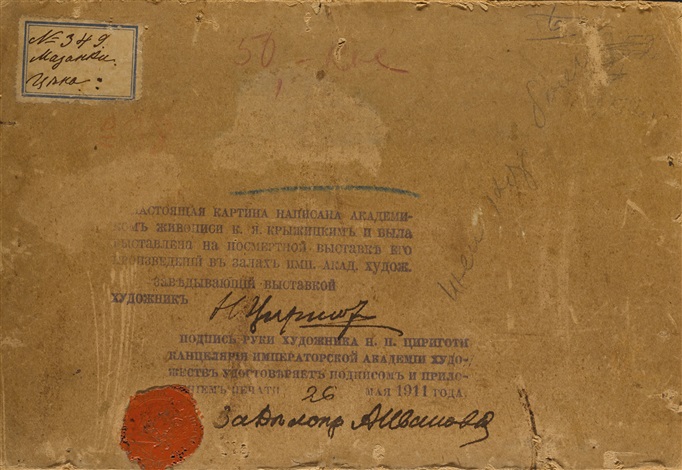 № 349
Мазанки.
Цѣна:
50
НАСТОЯЩАЯ КАРТИНА НАПИСАНА АКАДЕМИ-
КОМЪ ЖИВОПИСИ К. Я. КРЫЖИЦКИМЪ И БЫЛА
ВЫСТАВЛЕНА НА ПОСМЕРТНОЙ ВЫСТАВКѢ ЕГО
ПРОИЗВЕДЕНІЙ ВЪ ЗАЛАХЪ ИМП. АКАД. ХУДОЖ.
ЗАВѢДЫВАЮЩІЙ ВЫСТАВКОЙ
ХУДОЖНИКЪ Н Цириготи
ПОДПИСЬ РУКИ ХУДОЖНИКА Н. П. ЦИРИГОТИ
КАНЦЕЛЯРІЯ ИМПЕРАТОРСКОЙ АКАДЕМІИ ХУДО-
ЖЕСТВЪ УДОСТОВѢРЯЕТЪ ПОДПИСОМЪ И ПРИЛО-
ЖЕНІЕМЪ ПЕЧАТИ. 26 МАЯ 1911 ГОДА.
За Дѣлопр АИванова